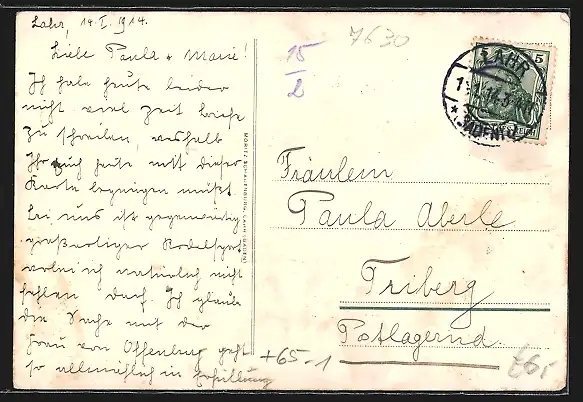 Lahr, 14.I.1914.
Liebe Paula + Marie!
Ich habe heute leider
nicht viel Zeit Briefe
zu schreiben, weshalb
Ihr euch heute mit dieser
Karte begnügen müßt.
Bei uns ist gegenwärtig
großartiger Rodelsport
wobei ich natürlich nicht
fehlen darf. Ich glaube
die Sache mit der
Frau von Offenburg geht
so allmählich in Erfüllung
MORITZ SCHAUENBURG, LAHR (BADEN)
15
2
7630
5 5
LAHR
(BADEN)
Fräulein
Paula Aberle
Triberg
Postlagernd.
+65-1